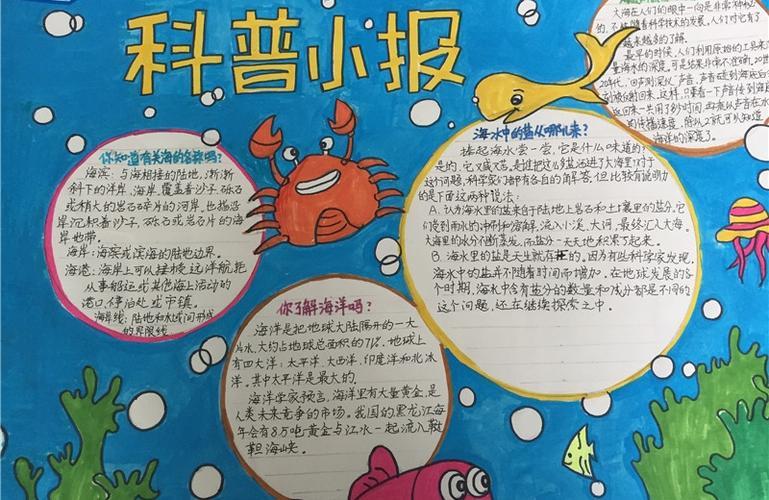 科普小报
你知道有关海的名称吗?
海滨:与海相接的陆地,渐渐
斜下的洋岸。海岸,覆盖着沙子、砾石
或稍大的岩石碎片的河岸。也指沿
岸沉积着沙子、砾石或岩石片的海
岸地带。
海岸:海滨或滨海的陆地边界。
海港:海岸上可以接檢这洋航,能
从事船运或其他海上活动的
港口、停泊处或市镇。
海岸线:陆地和水域间形成
的界限线
你了解海洋吗?
海洋是把地球大陆隔开的一大
片水,大约占地球总面积的71%。地球上
有四大洋:太平洋、大西洋、印度洋和北冰
洋。其中太平洋是最大的。
海洋学家预言,海洋里有大量黄金,是
人类未来竞争的市场。我国的黑龙江每
年会有8万吨黄金与江水一起流入鞑
靼海峡。
海水中的盐从哪儿来?
掬起海水尝一尝,它是什么味道的?
是的,它又咸又苦。是谁把这么多盐送进了大海里?对于
这个问题,科学家们都有各自的解答,但比较有说明力
的是下面这两种说法:
A、认为海水里的盐来自于陆地上岩石和土壤里的盐分。它
们受到雨水的冲刷和溶解,流入小溪、大河,最终汇入大海。
大海里的水分不断蒸发,而盐分一天天地积累了起来。
B、海水里的盐是天生就存在的。因为有些科学家发现,
海水中的盐并不随着时间而增加。在地球发展的各
个时期,海水中含有盐分的数量和成分都是不同的
这个问题,还在继续探索之中。
大海在人们的眼中一向是非常神秘
的,不过随着科学技术的发展,人们对它有了
越来越多的了解。
最早的时候,人们利用原始的工具来
量海水的深度,可是结果非常不准确。20世
20年代,回声测深仪"声音,声音传到海底后
被反射回来,这样,只要看一下声音传到海
返回来一共用了多少时间,再乘以声音在水
的传播速度,除以2就可以知道
海洋的深度了。